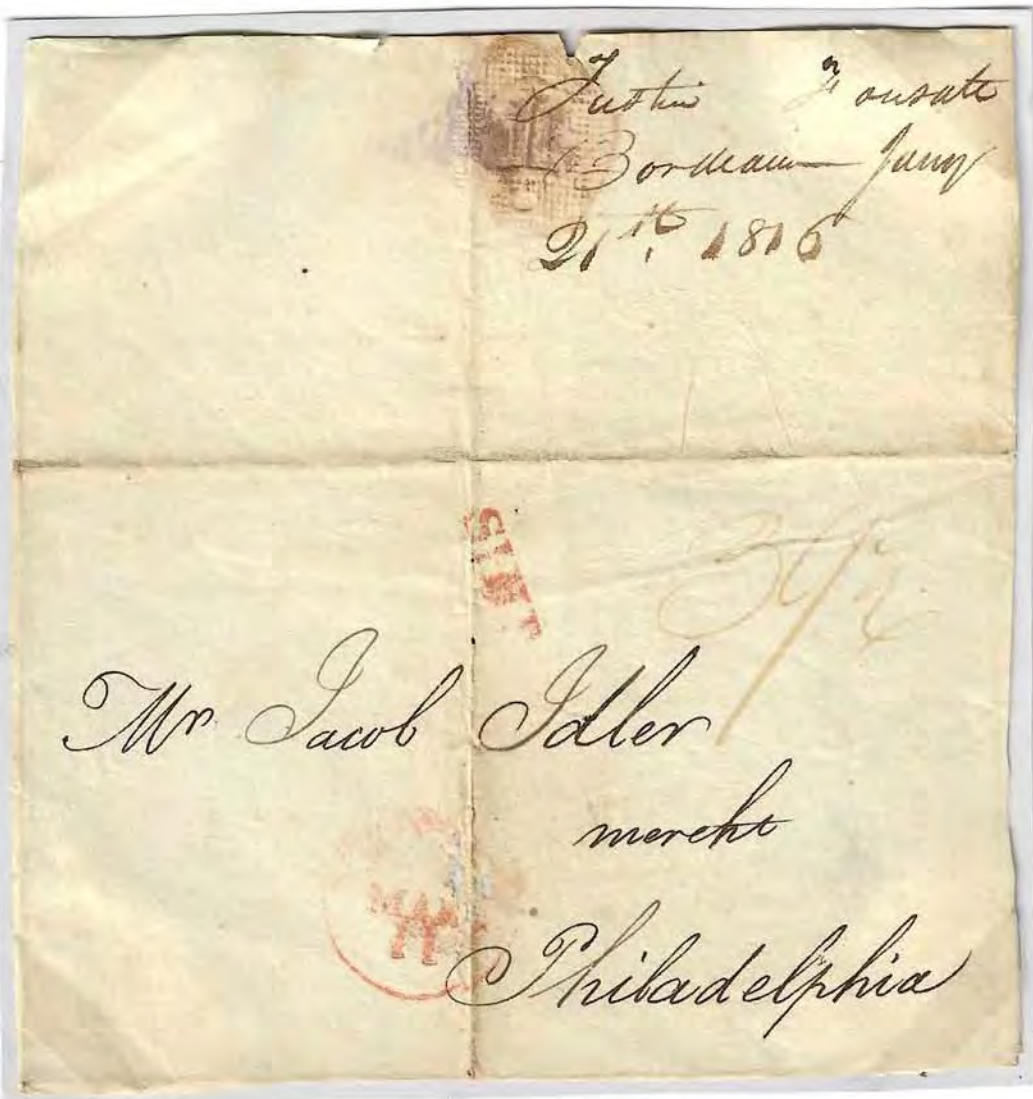 Justin Fousatt
Bordeaux Jany
21st. 1816
SHIP
34 1/2
Mr. Jacob Idler
mercht
Philadelphia
MAR
11